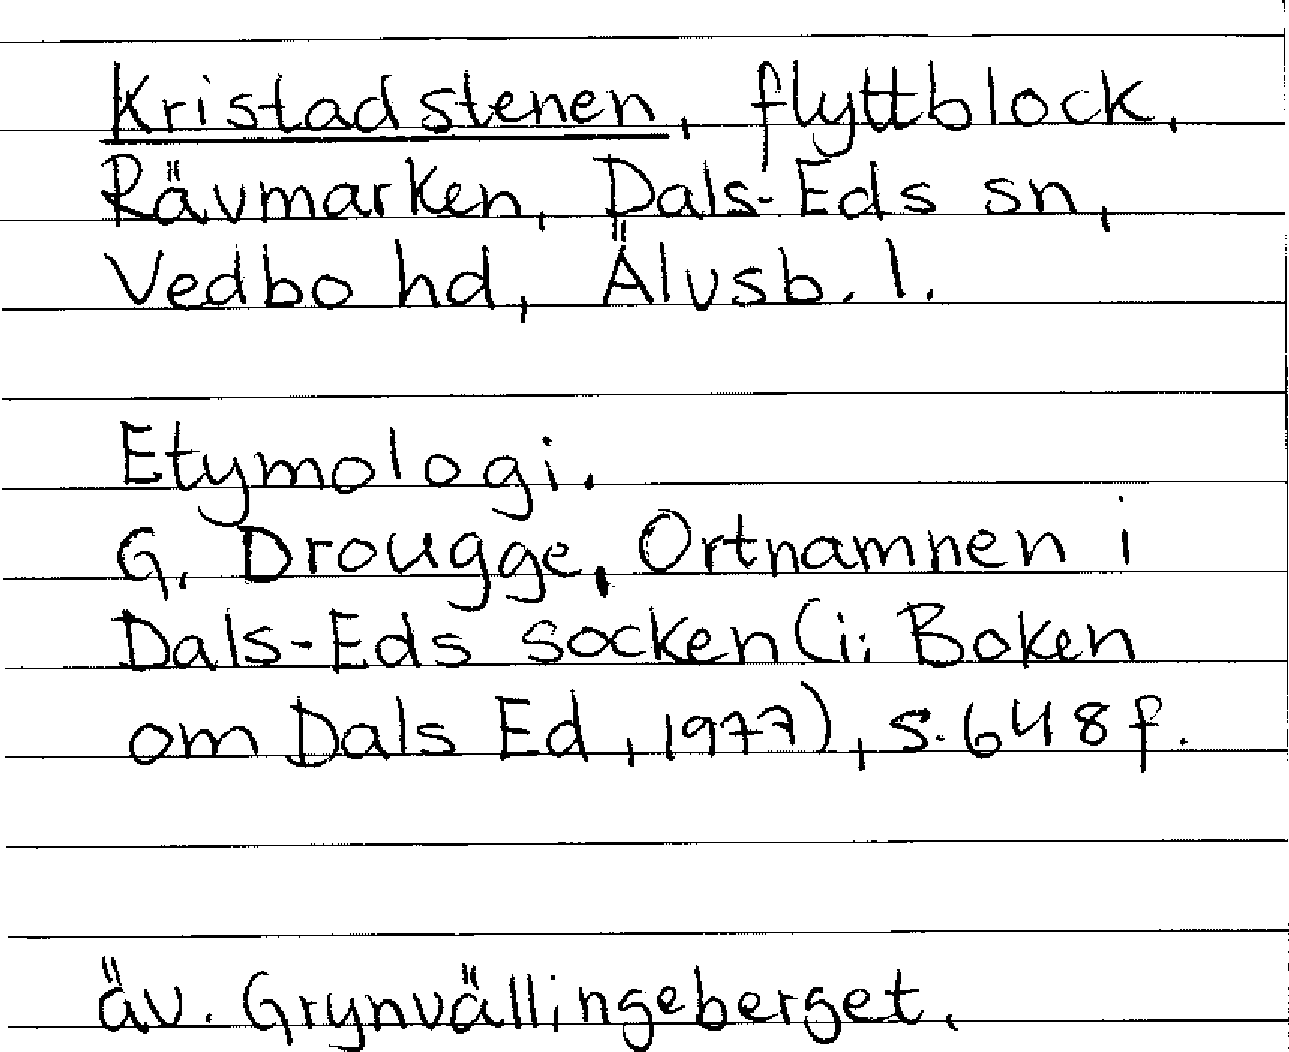 Kristadstenen, flyttblock,
Rävmarken, Dals-Eds sn,
Vedbo hd, Älvsb. l.
Etymologi.
G. Drougge, Ortnamnen i
Dals-Eds socken (i: Boken
om Dals Ed, 1977), s. 648 f.
äv. Grynvällingeberget.